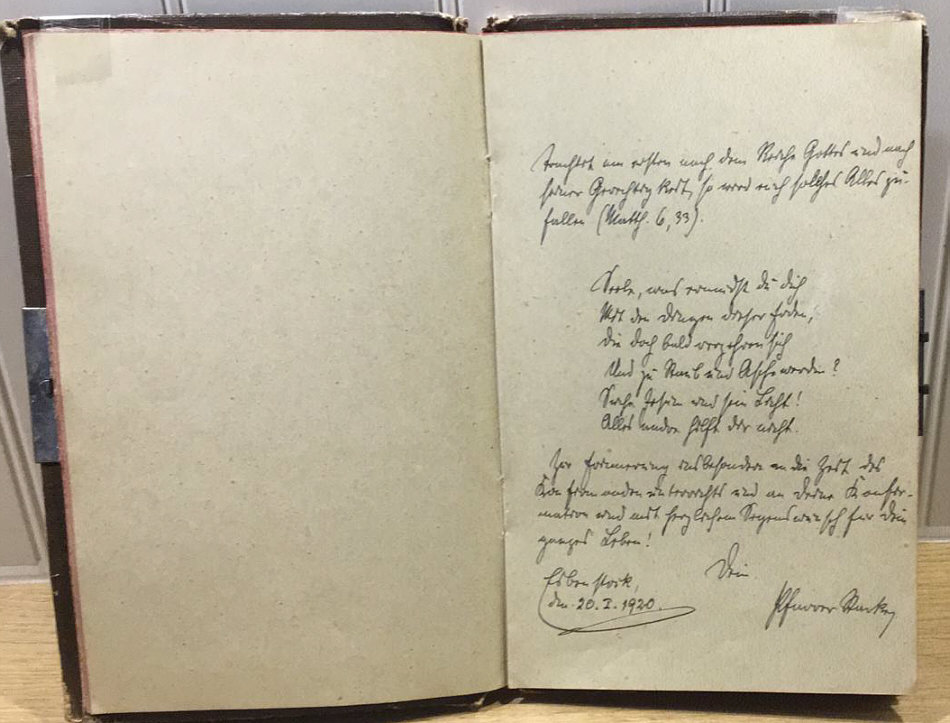 Trachtet am ersten nach dem Reiche Gottes und nach
seiner Gerechtigkeit, so wird euch solches Alles zu-
fallen (Matth. 6, 33).
Seele, was ermüdst du dich
Mit den Dingen dieser Erden,
Die doch bald verzehren sich
Und zu Staub und Asche werden?
Suche Jesum und sein Licht!
Alles andre hilft dir nicht.
Zur Erinnerung insbesondere an die Zeit des
Konfirmandenunterrichts und an deine Konfir-
mation und mit herzlichem Segenswunsch für dein
ganzes Leben!
Dein
Eibenstock,
den 20. I. 1920.
Pfarrer